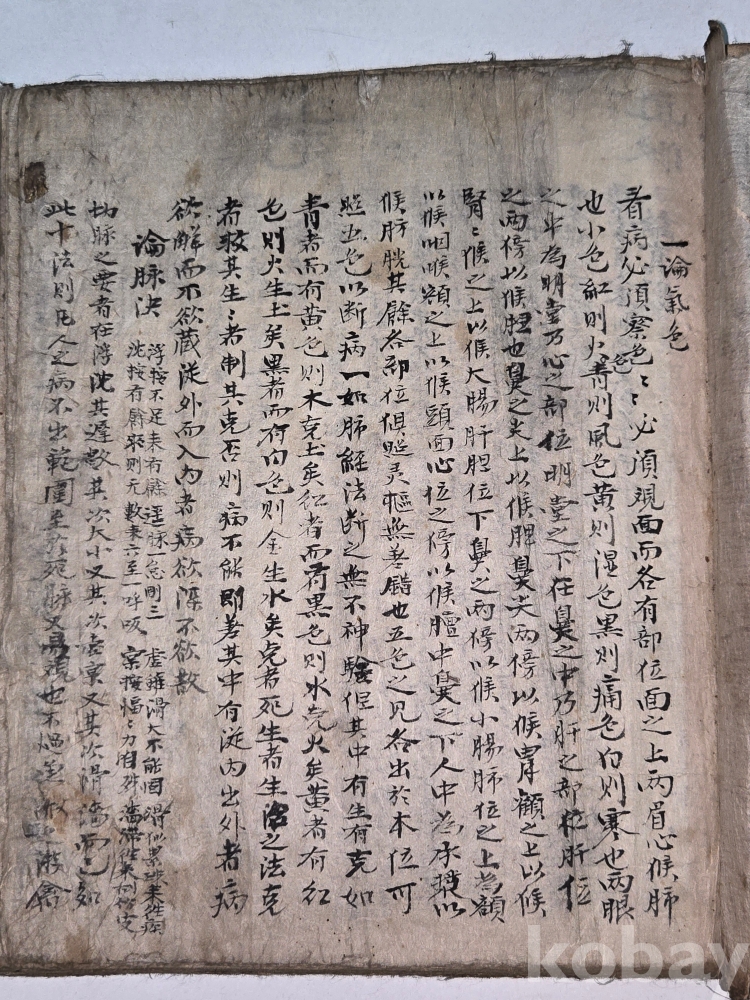 一論氣色
看病必須察色〻必須視面而各有部位面之上兩眉心候肺
也小色紅則火色青則風色黃則湿色黑則痛色白則寒也兩眼
之中為明堂乃心之部位明堂之下在鼻之中乃肝之部位肝位
之兩傍以候胆也鼻之尖上以候脾鼻尖兩傍以候胃顴之上以候
腎〻候之上以候大腸肝胆位下鼻之兩傍以候小腸肺位之上為額
以候咽喉額之上以候頭面心位之傍以候膻中鼻之下人中為承漿以
候膀胱其餘各部位俱照灵樞無差錯也五色之見各出於本位可
照五色以断病一如肺經法断之無不神驗但其中有生有克如
青者而有黃色則木克土矣紅者而有黑色則水克火矣黃者有紅
色則火生土矣黑者而有白色則金生水矣克者死生者生治之法克
者救其生〻者制其克否則病不能即善其中有從內出外者病
欲解而不欲藏從外而入內者病欲深不欲散
論脉决
浮按不足来有餘 遲脉一息剛三 虛雖滑大不能固 滑似累珠来往疾
沈按有餘来則无 數来六至一呼吸 實按愊〻力自殊 濇滯往来
切脉之要者在浮沈其遲數其次大小又其次虛實又其次滑濇而已知
此十法則凡人之病不出範圍至於死脉又易視也不過